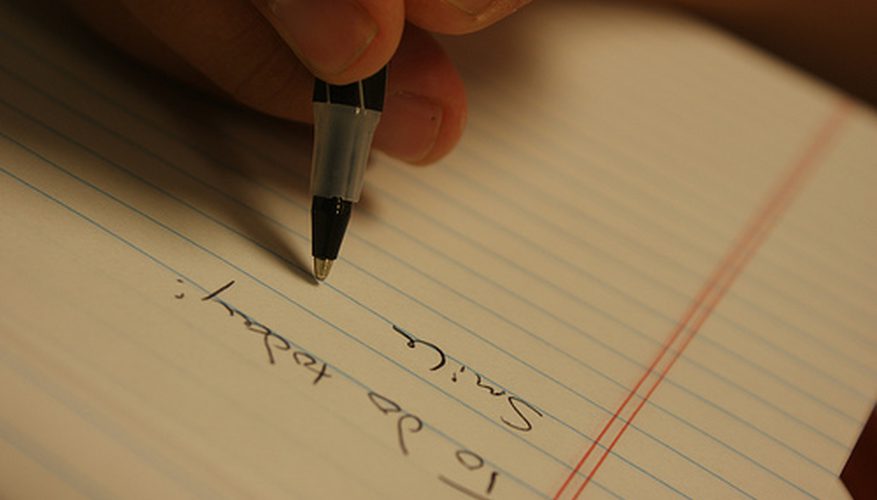 To do today:
Smile